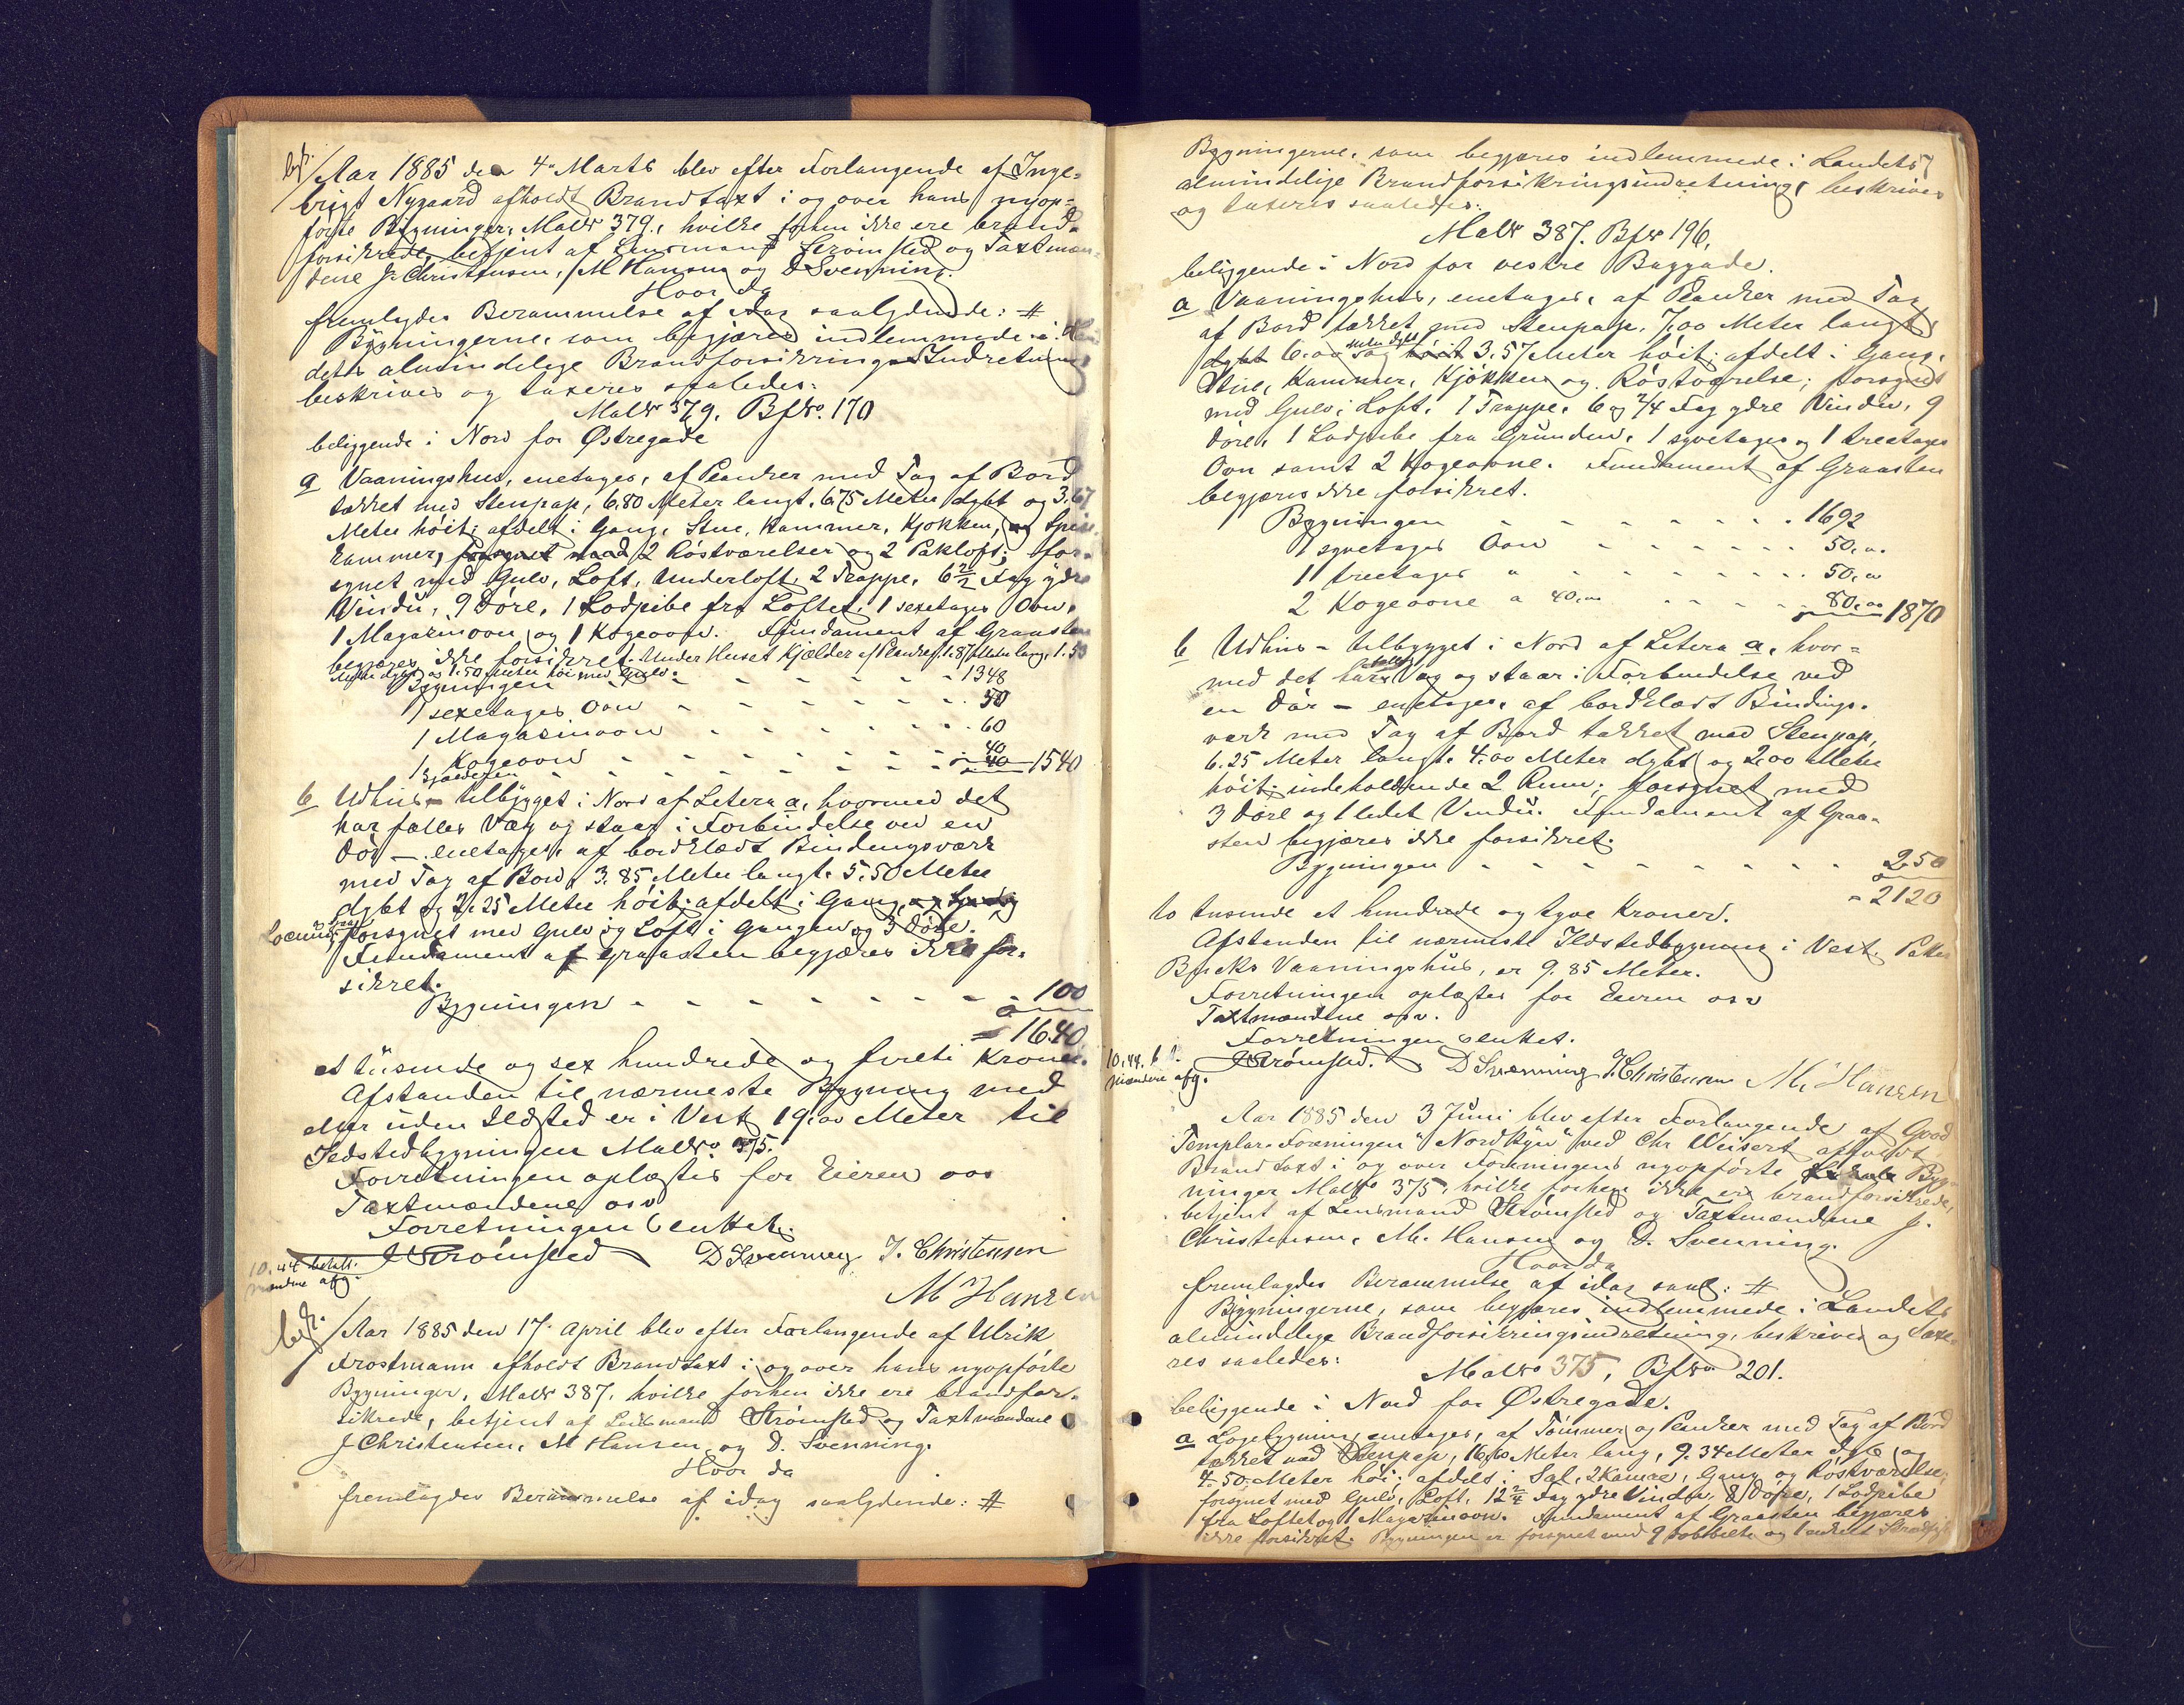 Aar 1885 den 4 Marts blev efter Forlangende af Inge-
brigt Nygaard afholdt Brandtaxt i og over hans nyop-
førte Bygninger, Matr 379, hvilke forhen ikke ere brand-
forsikrede, betjent af Lensmand Strømsted og Taxtmæn-
dene J. Christensen, M Hansen og D Svenning.
Hvor da
fremlagdes Berammelse af idag saalydende: #
Bygningerne, som begjæres indlemmede i Lan
dets almindelige Brandforsikrings Indretning
beskrives og taxeres saaledes:
Matr 379. Bfno. 170
beliggende i Nord for Østregade
a Vaaningshus, enetages, af Planker med Tag af Bord
tækket med Stenpap, 6,80 Meter langt, 6,75 Meter dybt og 3,67
Meter høit; afdelt i Gang, Stue, Kammer, Kjøkken, og Spise
kammer, forsynet med 2 Røstværelser og 2 Pakloft; for-
synet med Gulv, Loft, Underloft, 2 Trappe, 6 2/2 Fag ydre
Vindu, 9 Døre, 1 Lodpibe fra Loftet, 1 sexetages Ovn,
1 Magazinovn og 1 Kogeovn. Fundament af Graasten
begjæres ikke forsikret. Under Huset Kjælder af Planker, 1.87 Meter lang, 1.53
Meter dybt og 1.50 Meter høi med Gulv.
Bygningen - - - - - - 1348
1 sexetages Ovn - - - - - - 50
1 Magazinovn - - - - - - 60
1 Kogeovn - - - - - - 40
Kjælderen - - - - - - 40 1540
b Udhus - tilbygget i Nord af Litera a, hvormed det
har fælles Væg og staar i Forbindelse ved en
Dør - enetages, af bordklædt Bindingsværk
med Tag af Bord, 3.85 Meter langt. 5.50 Meter
dybt og 2.25 Meter høit; afdelt i Gang, og
Locum; forsynet med Gulv og Loft i Gangen og 3 Døre.
Fundament af Graasten begjæres ikke for-
sikret.
Bygningen - - - - - - - 100
= 1640
et tusinde og sex hundrede og fireti Kroner.
Afstanden til nærmeste Bygning med
eller uden Ildsted er i Vest 19.00 Meter til
Ildstedbygningen Matrno. 375.
Forretningen oplæstes for Eieren osv
Taxtmændene osv
Forretningen sluttet.
10.44 betalt. J Strømsted D Svenning J. Christensen
mændene afg.
M Hansen
Aar 1885 den 17. April blev efter Forlangende af Ulrik
Frostmann afholdt Brandtaxt i og over hans nyopførte
Bygninger, Matr 387, hvilke forhen ikke ere brandfor-
sikrede, betjent af Lensmand Strømsted og Taxtmændene
J Christensen, M Hansen og D. Svenning.
Hvor da
fremlagdes Berammelse af idag saalydende: #
Bygningerne, som begjæres indlemmede i Landets
almindelige Brandforsikringsindretning, beskrives
og taxeres saaledes:
Matr 387. Bfno 196,
beliggende i Nord for vestre Baggade.
a Vaaningshus, enetages, af Planker med Tag
af Bord tækket med Stenpap, 7,00 Meter langt,
dybt 6.00 Meter dybt og høit 3.57 Meter høit; afdelt i Gang,
Stue, Kammer, Kjøkken og Røstværelse; forsynet
med Gulv, Loft, 1 Trappe, 6 og 2/4 Fag ydre Vindu, 9
Døre, 1 Lodpibe fra Grunden, 1 syvetages og 1 treetages
Ovn samt 2 Kogeovne. Fundament af Graasten
begjæres ikke forsikret.
Bygningen - - - - - - 1692
1 syvetages Ovn - - - - - - 50,00
1 treetages " - - - - - - 50,00
2 Kogeovne a 40,00 - - - - 80,00 1870
b Udhus - tilbygget i Nord af Litera a, hvor-
med det har fælles Væg og staar i Forbindelse ved
en Dør - enetages, af bordklædt Bindings-
værk med Tag af Bord tækket med Stenpap,
6.25 Meter langt, 4.00 Meter dybt og 2.00 Meter
høit; indeholdende 2 Rum; forsynet med
3 Døre og 1 lidet Vindu. Fundament af Graa-
sten begjæres ikke forsikret.
Bygningen - - - - - - - 250
= 2120
to tusinde et hundrede og tyve Kroner.
Afstanden til nærmeste Ildstedbygning i Vest,
Bucks Vaaningshus, er 9.85 Meter.
Forretningen oplæstes for Eieren osv
Taxtmændene osv.
Forretningen sluttet.
10.44. b
J Strømsted. D Svenning J. Christensen M. Hansen
mændene afg.
Aar 1885 den 3 Juni blev efter Forlangende af Good
Templar-Foreningen "Nordkyn" ved Chr Weisert afholdt
Brandtaxt i og over Foreningens nyopførte Byg-
ninger Matrno 375, hvilke forhen ikke ere brandforsikrede,
betjent af Lensmand Strømsted og Taxtmændene J.
Christensen, M. Hansen og D. Svenning.
Hvor da
fremlagdes Berammelse af idag saal: #
Bygningerne, som begjæres indlemmede i Landets
almindelige Brandforsikringsindretning, beskrives og taxe-
res saaledes:
Matrno 375, Bfno 201.
beliggende i Nord for Østregade.
a Logebygning, enetages, af Tømmer og Planker med Tag af Bord
tækket med Stenpap, Meter lang, 9.34 Meter dyb og
4.50 Meter høi; afdelt i Sal, 2 Kamre, Gang og Røstværelse;
forsynet med Gulv, Loft, 12 2/4 Fag ydre Vindu, 8 Døre, 1 Lodpibe
fra Loftet og 1 Magazinovn. Fundament af Graasten begjæres
ikke forsikret. Bygningen er forsynet med 9 dobbelte og 1 enkelt